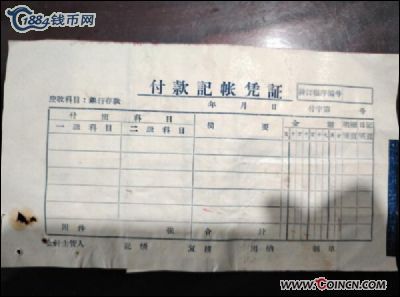 1884钱币网
付款記帐凭証
装訂順序編号
应收科目：銀行存款
年 月 日
付字第 号
付出科目
摘要
金額
一級科目 二級科目
附件 張 合計
会計主管人 記帳 复核 出納 制单
www.COiNCN.com